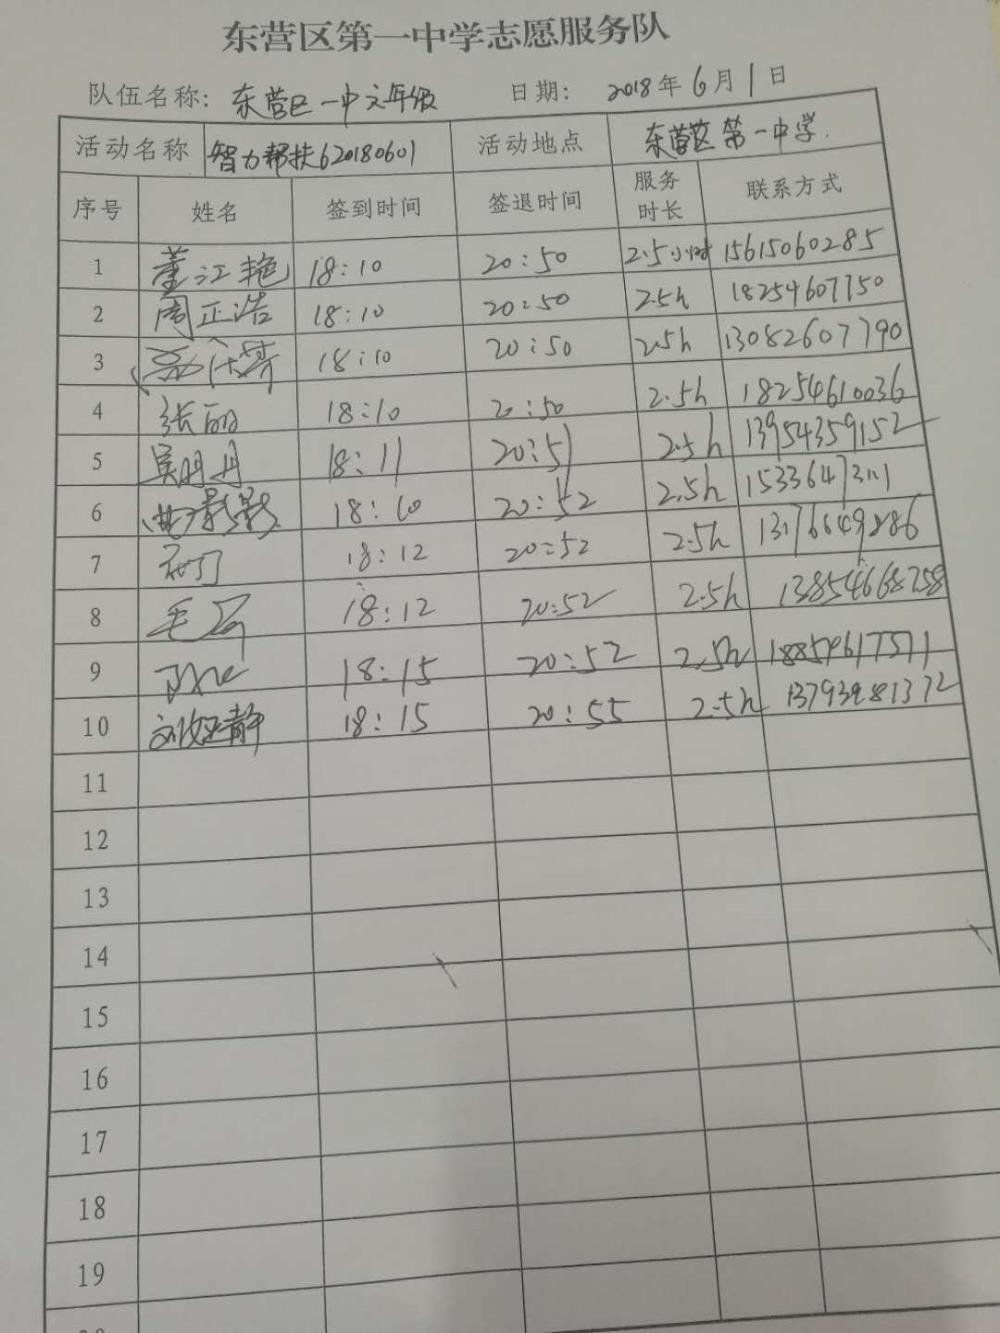 东营区第一中学志愿服务队
队伍名称: 东营区一中六年级 日期: 2018年6月1日
活动名称 智力帮扶620180601 活动地点 东营区第一中学.
序号 姓名 签到时间 签退时间 服务时长 联系方式
1 董江艳 18:10 20:50 2.5小时 15615060285
2 周正浩 18:10 20:50 2.5h 18254607750
3 18:10 20:50 2.5h 13082607790
4 张丽 18:10 20:50 2.5h 18254610036
5 吴明月 18:11 20:51 2.5h 13954359152
6 18:10 20:52 2.5h
7 18:12 20:52 2.5h
8 18:12 20:52 2.5h
9 18:15 20:52 2.5h
10 18:15 20:55 2.5h
11
12
13
14
15
16
17
18
19